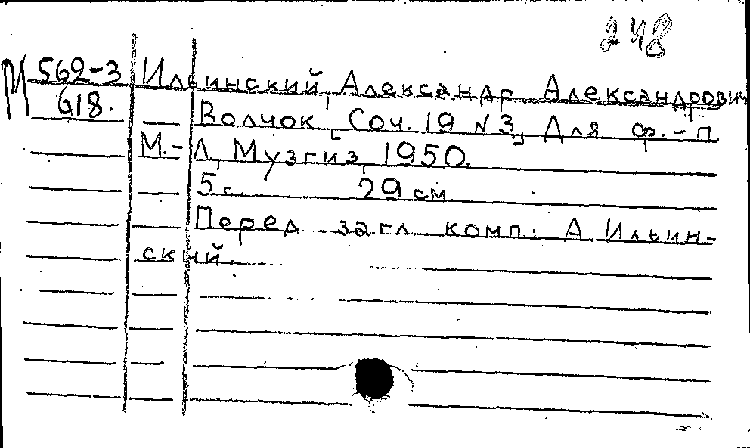 248
М 562-3 Ильинский, Александр Александрович
618.
Волчок [Соч. 19 №3] Для ф.-п
М.-Л, Музгиз, 1950.
5 с. 29 см
Перед загл. комп.: А. Ильин-
ский.